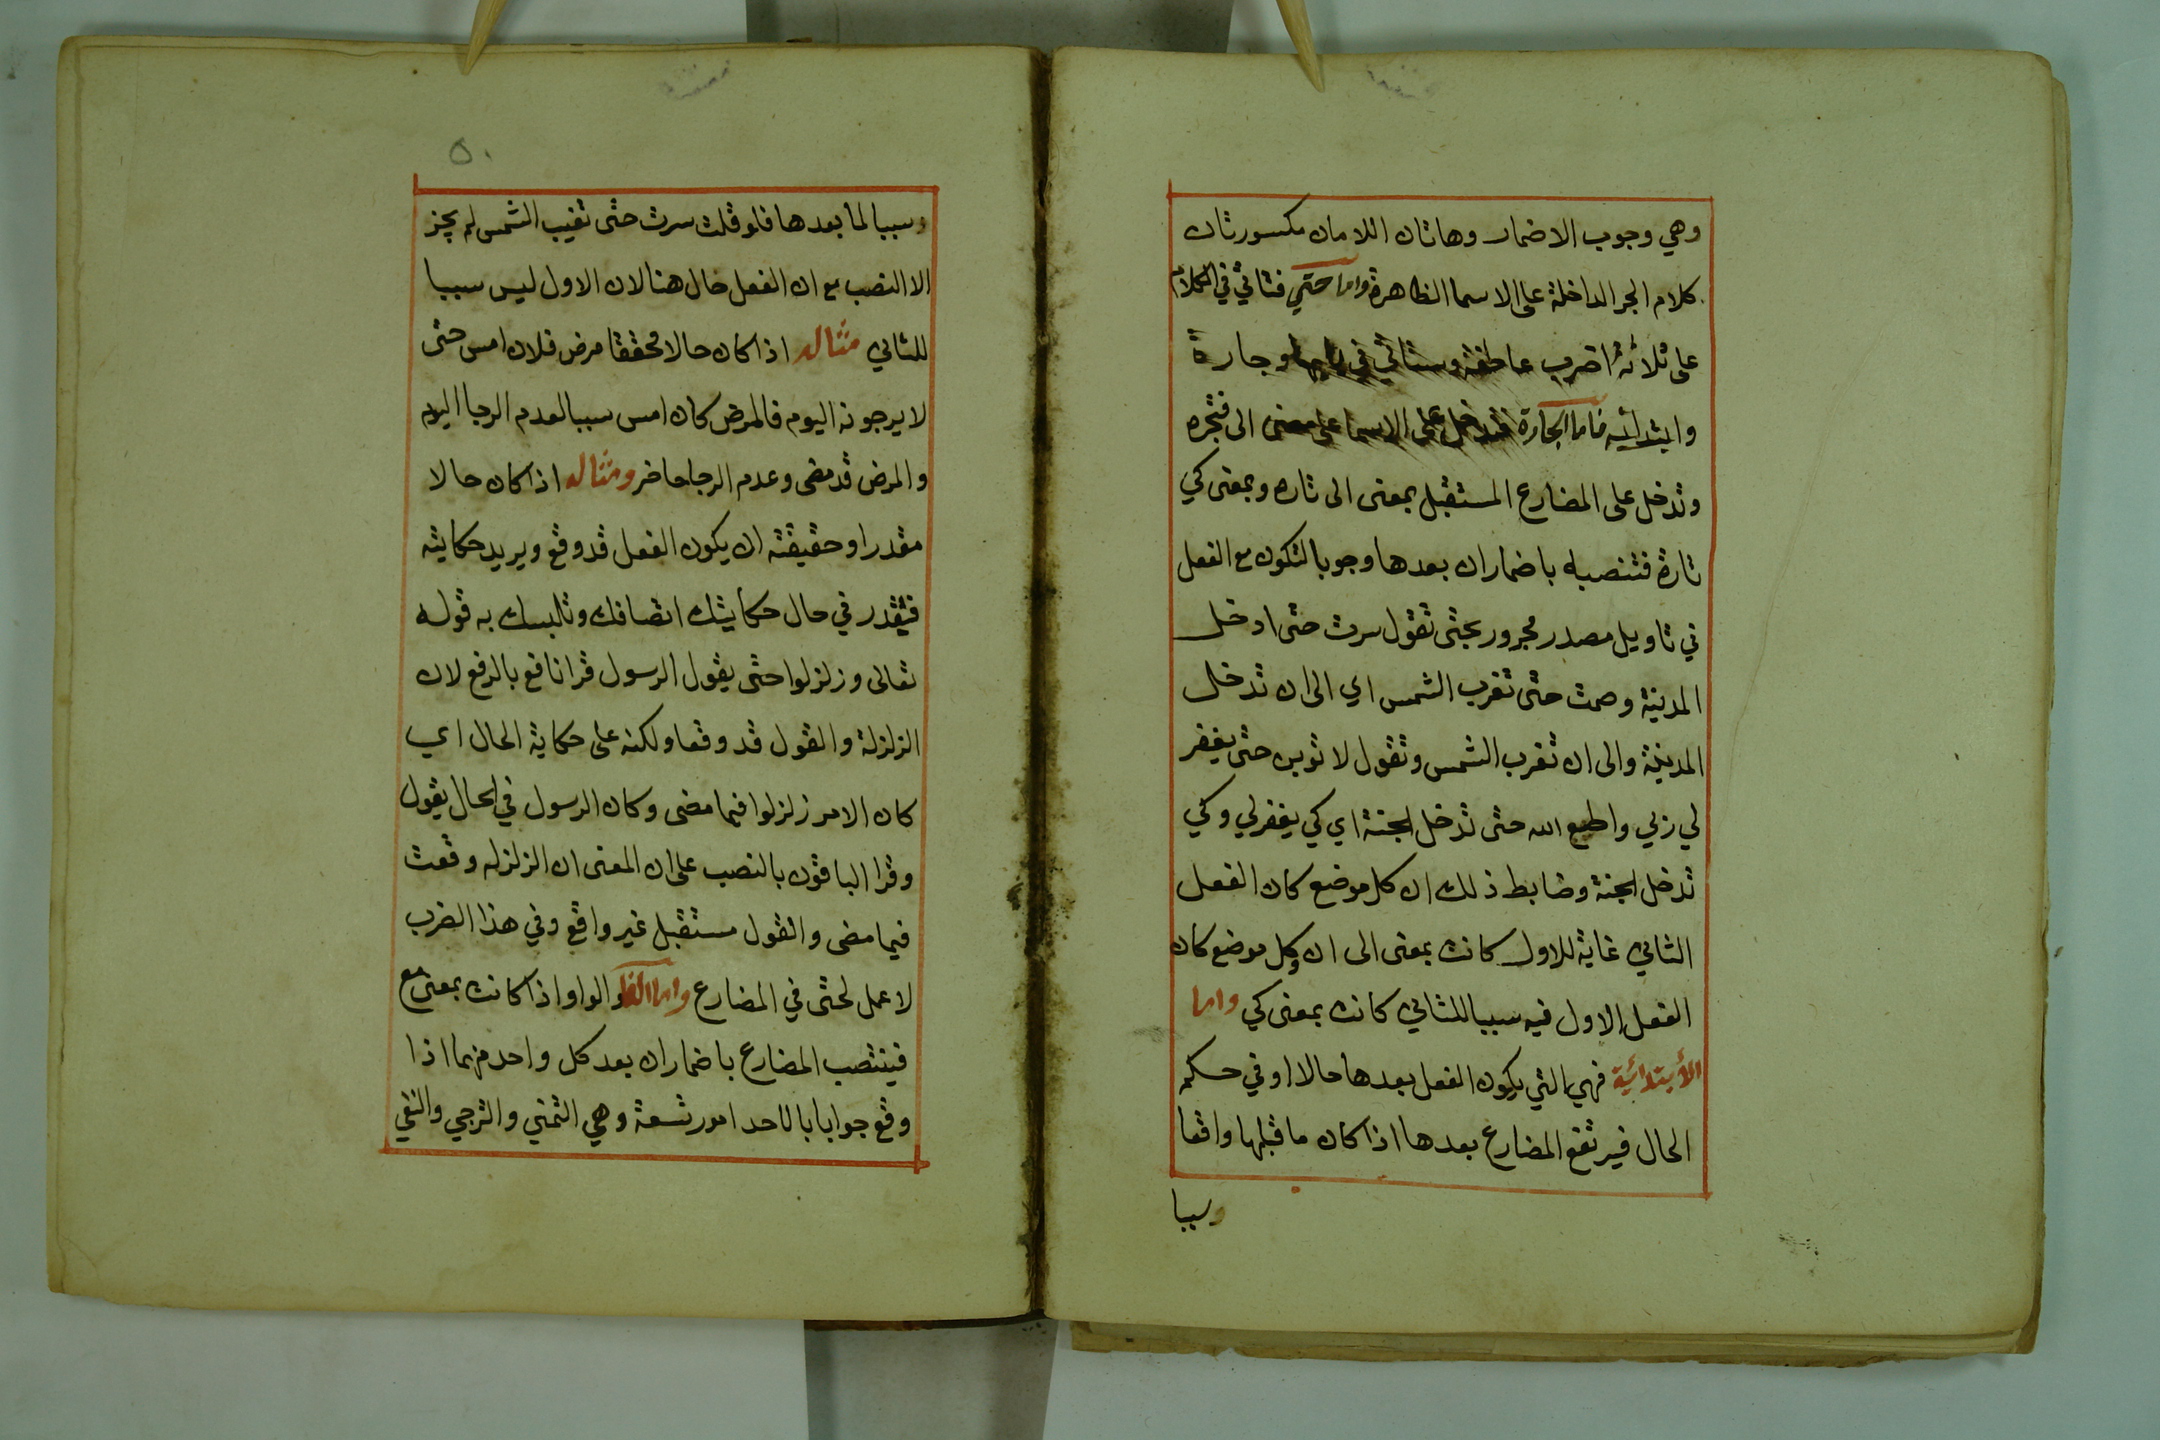 وهي وجوب الاضمار وهاتان اللامان مكسورتان
كلام الجر الداخلة على الاسما الظاهرة واما حتي فتاتي في الكلام
على ثلاثة اضرب عاطفة وستاتي في بابها وجارة
وابتدائيه فاما الجارة فتدخل على الاسما على معنى الى فتجره
وتدخل على المضارع المستقبل بمعنى الى تاره وبمعنى كي
تارة فتنصبه باضمار ان بعدها وجوبا لتكون مع الفعل
في تاويل مصدر مجرور بحتى تقول سرت حتى ادخل
المدينة وصمت حتى تغرب الشمس اي الى ان تدخل
المدينة والى ان تغرب الشمس وتقول لاتوبن حتى يغفر
لي ربي واطيع الله حتى تدخل الجنة اي كي يغفر لي وكي
تدخل الجنة وضابط ذلك ان كل موضع كان الفعل
الثاني غاية للاول كانت بمعنى الى ان وكل موضع كان
الفعل الاول فيه سببا للثاني كانت بمعنى كي واما
الأبتدائية فهي التي يكون الفعل بعدها حالا او في حكم
الحال فيرتفع المضارع بعدها اذا كان ما قبلها واقعا
وسببا
٥٠
وسببا لما بعدها فلو قلت سرت حتى تغيب الشمس لم يجز
الا النصب مع ان الفعل حال هنا لان الاول ليس سببا
للثاني مثاله اذا كان حالا محققا مرض فلان امس حتى
لا يرجونه اليوم فالمرض كان امس سببا لعدم الرجا اليوم
والمرض قد مضى وعدم الرجا حاضر ومثاله اذا كان حالا
مقدرا وحقيقته ان يكون الفعل قد وقع ويريد حكايته
فيقدر في حال حكايتك اتصافك وتلبسك به قوله
تعالى وزلزلوا حتى يقول الرسول قرا نافع بالرفع لان
الزلزلة والقول قد وقعا ولكنه على حكاية الحال اي
كان الامر زلزلوا فيما مضى وكان الرسول في الحال يقول
وقرا الباقون بالنصب على ان المعنى ان الزلزله وقعت
فيما مضى والقول مستقبل غير واقع وفي هذا الضرب
لا عمل لحتى في المضارع واما الفا والواو اذا كانت بمعنى مع
فينتصب المضارع باضمار ان بعد كل واحد منهما اذا
وقع جوابا بالاحد امور تسعة وهي التمني والترجي والنفي